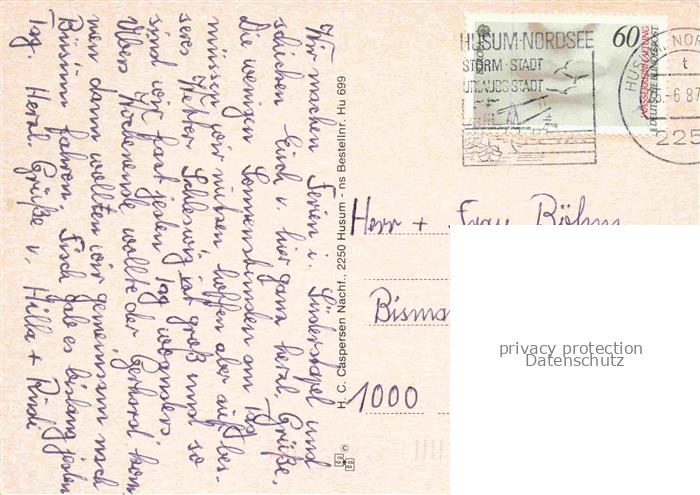 Wir machen Ferien i. Süderstapel und
schicken Euch v. hier ganz herzl. Grüße.
Die wenigen Sonnenstunden am Tag
müssen wir nutzen hoffen aber auf bes-
seres Wetter. Schleswig ist groß und so
sind wir fast jeden Tag woanders
Übers Wochenende wollte der Gerhard kom
men dann wollten wir gemeinsam nach
Büsum fahren. Fisch gab es bislang jeden
Tag. Herzl. Grüße v. Hilla + Rudi
H. C. Caspersen Nachf., 2250 Husum - ns Bestellnr. Hu 699
©
HUSUM-NORDSEE
STORM-STADT
URLAUBSSTADT
60
EUROPA
WASSERERHALTUNG
DEUTSCHE BUNDESPOST
HUSUM, NOR
t
5.-6.87
225
Herr + Frau Böhm
Bisma
1000
privacy protection
Datenschutz